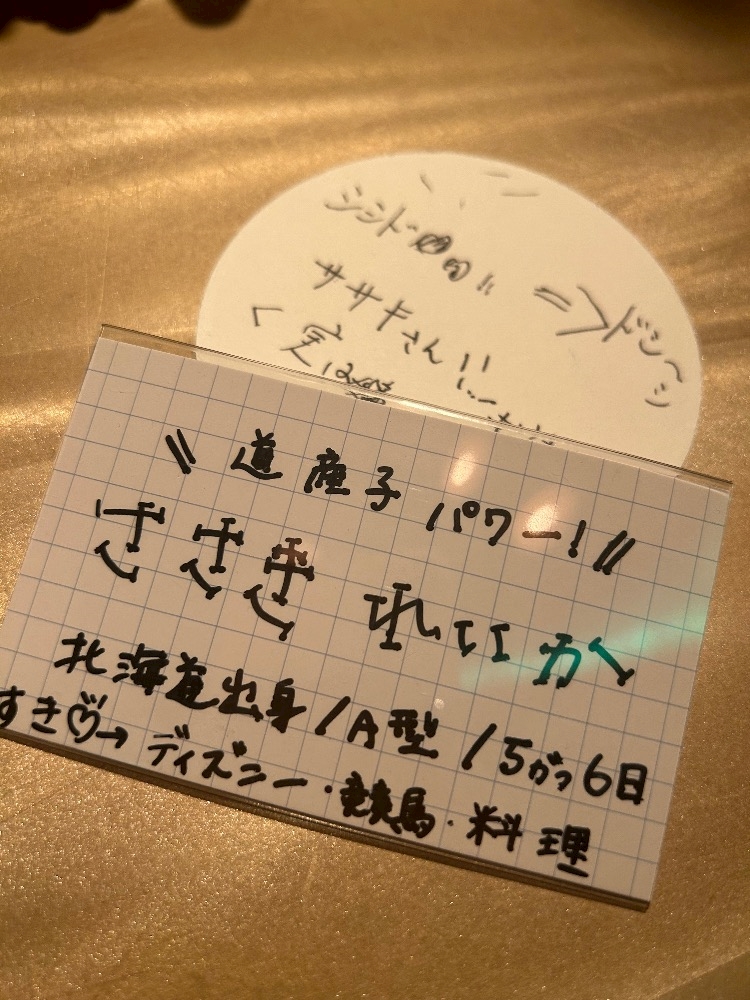 シシド
ササキさん!!
実は
\\ 道産子 パワー! //
ささき れいか
北海道出身/A型/5がつ6日
すき♡→ ディズニー・競馬・料理